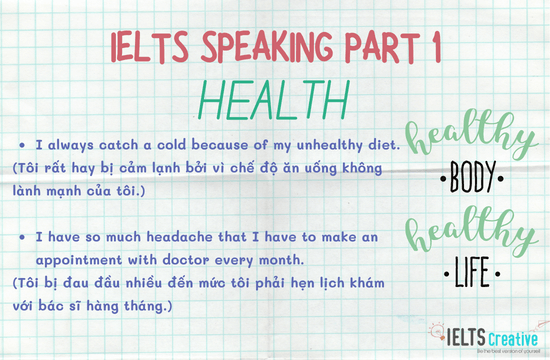 IELTS SPEAKING PART 1
HEALTH
• I always catch a cold because of my unhealthy diet.
(Tôi rất hay bị cảm lạnh bởi vì chế độ ăn uống không
lành mạnh của tôi.)
• I have so much headache that I have to make an
appointment with doctor every month.
(Tôi bị đau đầu nhiều đến mức tôi phải hẹn lịch khám
với bác sĩ hàng tháng.)
healthy
•BODY•
healthy
•LIFE•
IELTS Creative
Be the best version of yourself